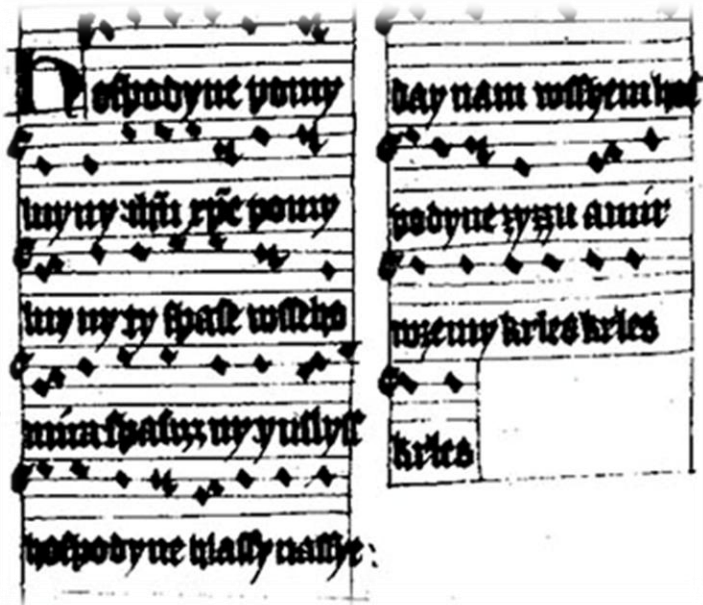 Hospodyne pomy
luy ny ihu xpe pomy
luy ny ty spase wsseho
mira spasiz ny y uslyss
hospodyne hlassy nassye
day nam wssyem hos
podyne zyzn a mir
wzemy krles krles
krles